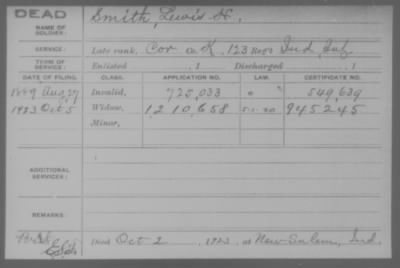 DEAD
NAME OF SOLDIER: Smith, Lewis H.
SERVICE: Late rank, Cor Co. K, 123 Reg't Ind. Inf.
TERM OF SERVICE: Enlisted , 1 Discharged , 1
DATE OF FILING. CLASS. APPLICATION NO. LAW. CERTIFICATE NO.
1889 Aug, 27 Invalid, 725,033 549,639
1923 Oct 5 Widow, 1,210,658 5-1-20 945245
Minor,
ADDITIONAL SERVICES:
REMARKS:
Died Oct 2 , 1923, at New Salem, Ind.